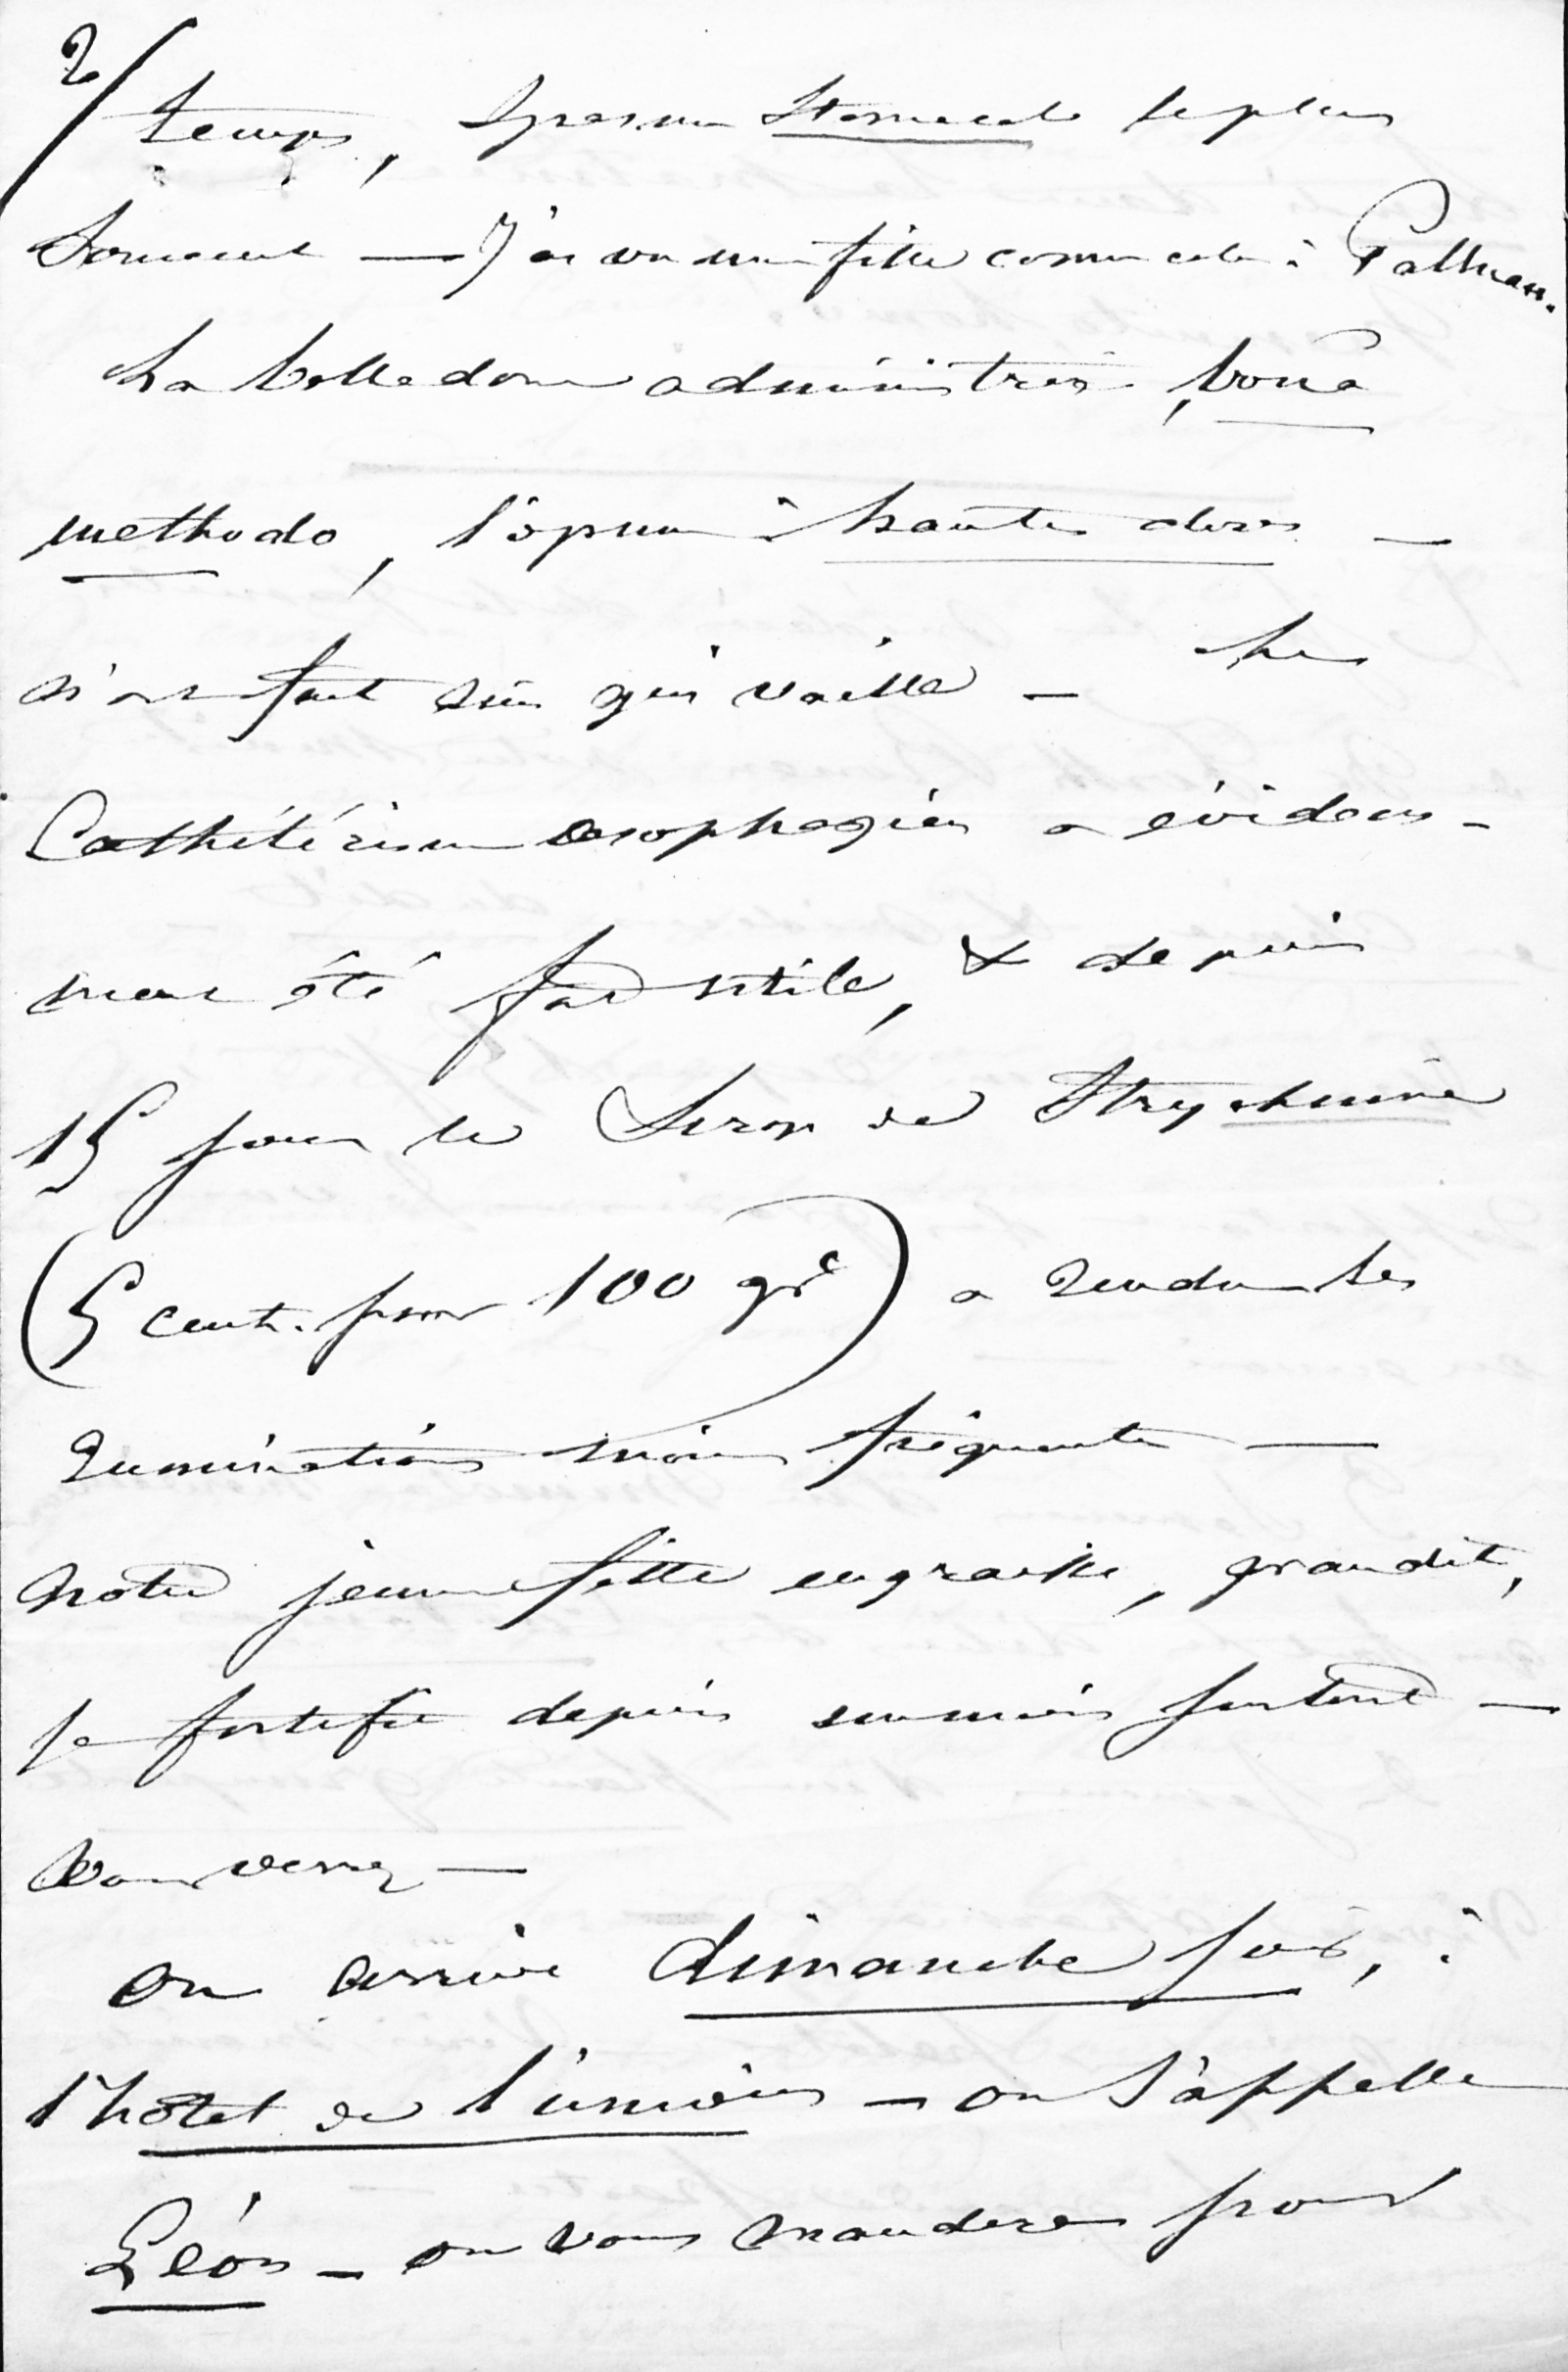 2/
temps, spasme stomacal le plus
souvent — J'ai vu une fille comme cela à
La belladone administrée, bonâ
methodo, l'opium à hautes doses —
n'ont fait rien qui vaille — Le
Cathétérisme œsophagien a évidem-
ment été fort utile, & depuis
15 jours le Sirop de Strychnine
(5 cent. pour 100 gr) a rendu les
ruminations moins fréquentes —
notre jeune fille engraisse, grandit,
se fortifie depuis un mois surtout —
Vous verrez —
on arrive dimanche soir, à
l'hôtel de l'univers — on s'appelle
Léon — on vous mandera pour